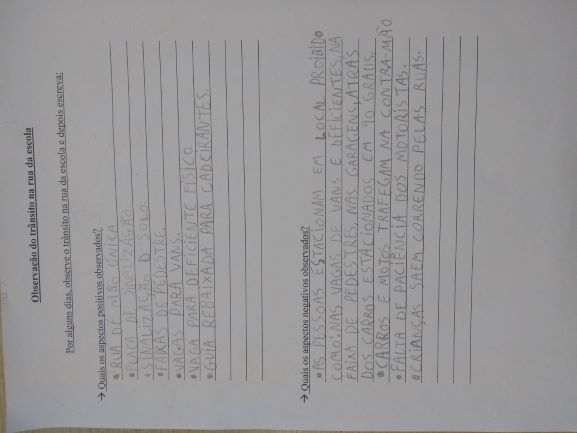 Observação do trânsito na rua da escola
Por alguns dias, observe o trânsito na rua da escola e depois escreva:
→ Quais os aspectos positivos observados?
• RUA DE MÃO ÚNICA
• PLACA DE SINALIZAÇÃO.
• SINALIZAÇÃO D SOLO.
• FAIXAS DE PEDESTRE.
• VAGAS PARA VANS.
• VAGA PARA DEFICIENTE FÍSICO.
• GUIA REBAIXADA PARA CADEIRANTES.
→ Quais os aspectos negativos observados?
• AS PESSOAS ESTACIONAM EM LOCAL PROÍBIDO
COMO: NAS VAGAS DE VANS E DEFICIENTES, NA
FAIXA DE PEDESTRES, NAS GARAGENS, ATRAS
DOS CARROS ESTACIONADOS EM 90 GRAUS.
• CARROS E MOTOS TRAFEGAM NA CONTRA-MÃO
• FALTA DE PACIÊNCIA DOS MOTORISTAS.
• CRIANÇAS SAEM CORRENDO PELAS RUAS.